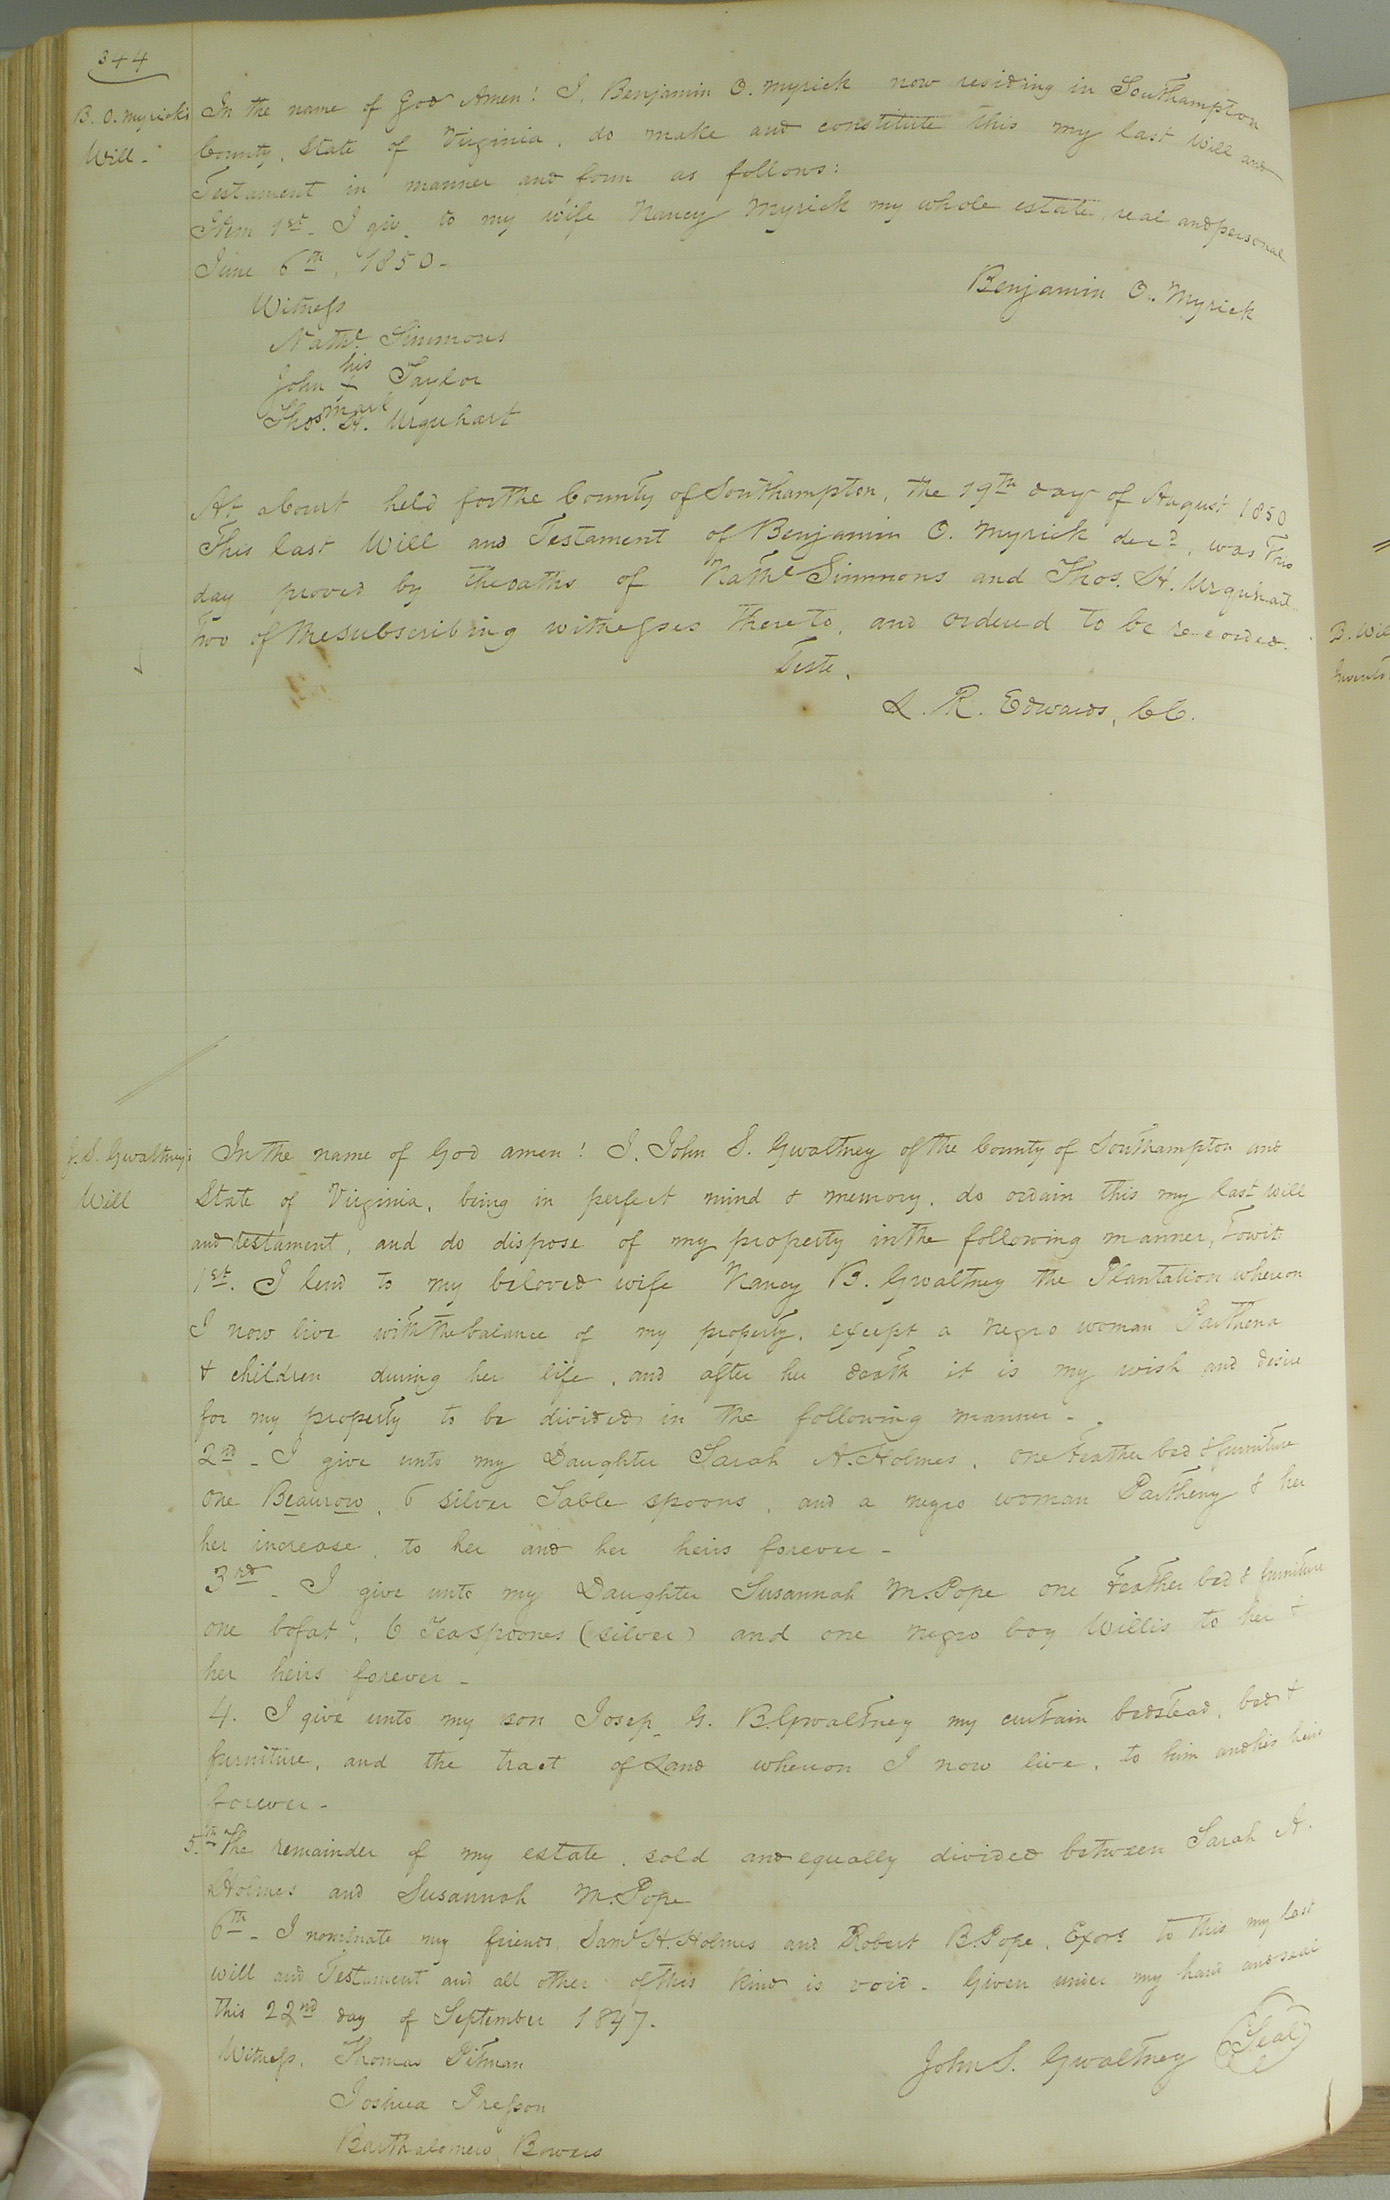 344
B. O. Myrick's
Will -
In the name of God Amen! I, Benjamin O. Myrick now residing in Southampton
County, State of Virginia, do make and constitute this my last Will and
Testament in manner and form as follows:
Item 1st. I giv. to my wife Nancy Myrick my whole estate, real and personal
June 6th, 1850 -
Benjamin O. Myrick
Witness
Nathl Simmons
his
John + Taylor
mark
Thos. H. Urquhart
At a Court held for the County of Southampton, the 19th day of August 1850
This last Will and Testament of Benjamin O. Myrick decd, was this
day proved by the oaths of Nathl Simmons and Thos. H. Urquhart
two of the subscribing witnesses thereto, and ordered to be recorded.
Teste,
L. R. Edwards, CC.
J. S. Gwaltney's
Will
In the name of God amen! I, John S. Gwaltney of the County of Southampton and
State of Virginia, being in perfect mind & memory, do ordain this my last will
and testament, and do dispose of my property in the following manner, Towit
1st. I lend to my beloved wife Nancy B. Gwaltney the Plantation whereon
I now live with the balance of my property, except a negro woman Parthena
& children during her life, and after her death it is my wish and desire
for my property to be divided in the following manner -
2nd - I give unto my Daughter Sarah A. Holmes, one Feather bed & furniture
one Beaurow, 6 silver Table spoons, and a negro woman Partheny & her
her increase, to her and her heirs forever -
3rd - I give unto my Daughter Susannah M. Pope one Feather bed & furniture
one bofat, 6 Teaspoones (silver) and one negro boy Willis to her &
her heirs forever -
4. I give unto my son Josep. G. B. Gwaltney my curtain bedstead, bed &
furniture, and the tract of Land whereon I now live, to him and his heirs
forever -
5.th The remainder of my estate, sold and equally divided between Sarah A.
Holmes and Susannah M. Pope
6th - I nominate my friends, Saml H. Holmes and Robert B. Pope, Exors to this my last
will and Testament and all other of this kind is void - Given under my hand and seal
this 22nd day of September 1847.
John S. Gwaltney (Seal)
Witness, Thomas Pitman
Joshua Presson
Barthalomew Bowers
B. Wil
Invent